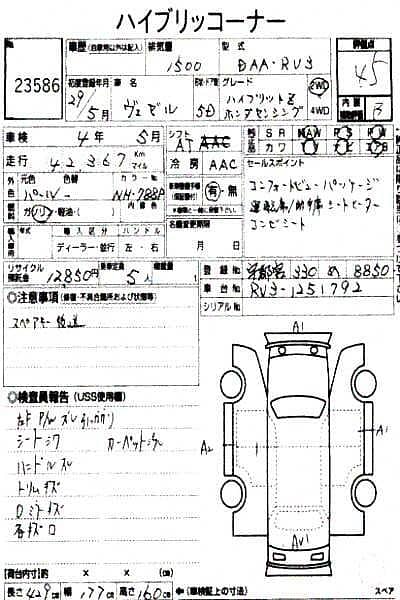 ハイブリッコーナー
出品No 23586
車歴 (自家用以外は記入)
排気量 1500
型式 DAA-RU3
評価点 4.5
初度登録年月 29年/5月
車名 ヴェゼル
ドア 5D
グレード ハイブリットZ
ホンダセンシング
2WD
4WD
内装 B
車検 4年 5月
シフト AT AAC
S R AW P S P W
走行 42,367 Km マイル
冷房 AAC
カワ
セールスポイント
外色 元色 パール 色替 カラーNo NH-788P 内装色
燃料 ガソリン・軽油・( )
有・無
コンフォートビューパッケージ
運転席/助手席シートヒーター
コンビシート
輸入車 年式 輸入区分 ハンドル
ディーラー・並行 左・右
名義変更期限 月 日
リサイクル預託金 12850円
乗車定員 5人
積載量
登録No 宇都宮 330 8850
◇注意事項 (修復・不具合箇所および状態等)
車台No RU3-1251792
シリアルNo
スペアキー後送
A1
◇検査員報告 (USS使用欄)
シートシワ カーペット
ハンドルスレ
トリムキズ
A2
1
A1
AV1
(荷台内寸)約 × × (cm)
長さ 429cm 幅 177cm 高さ 160cm ←(車検証上の寸法)
スペア